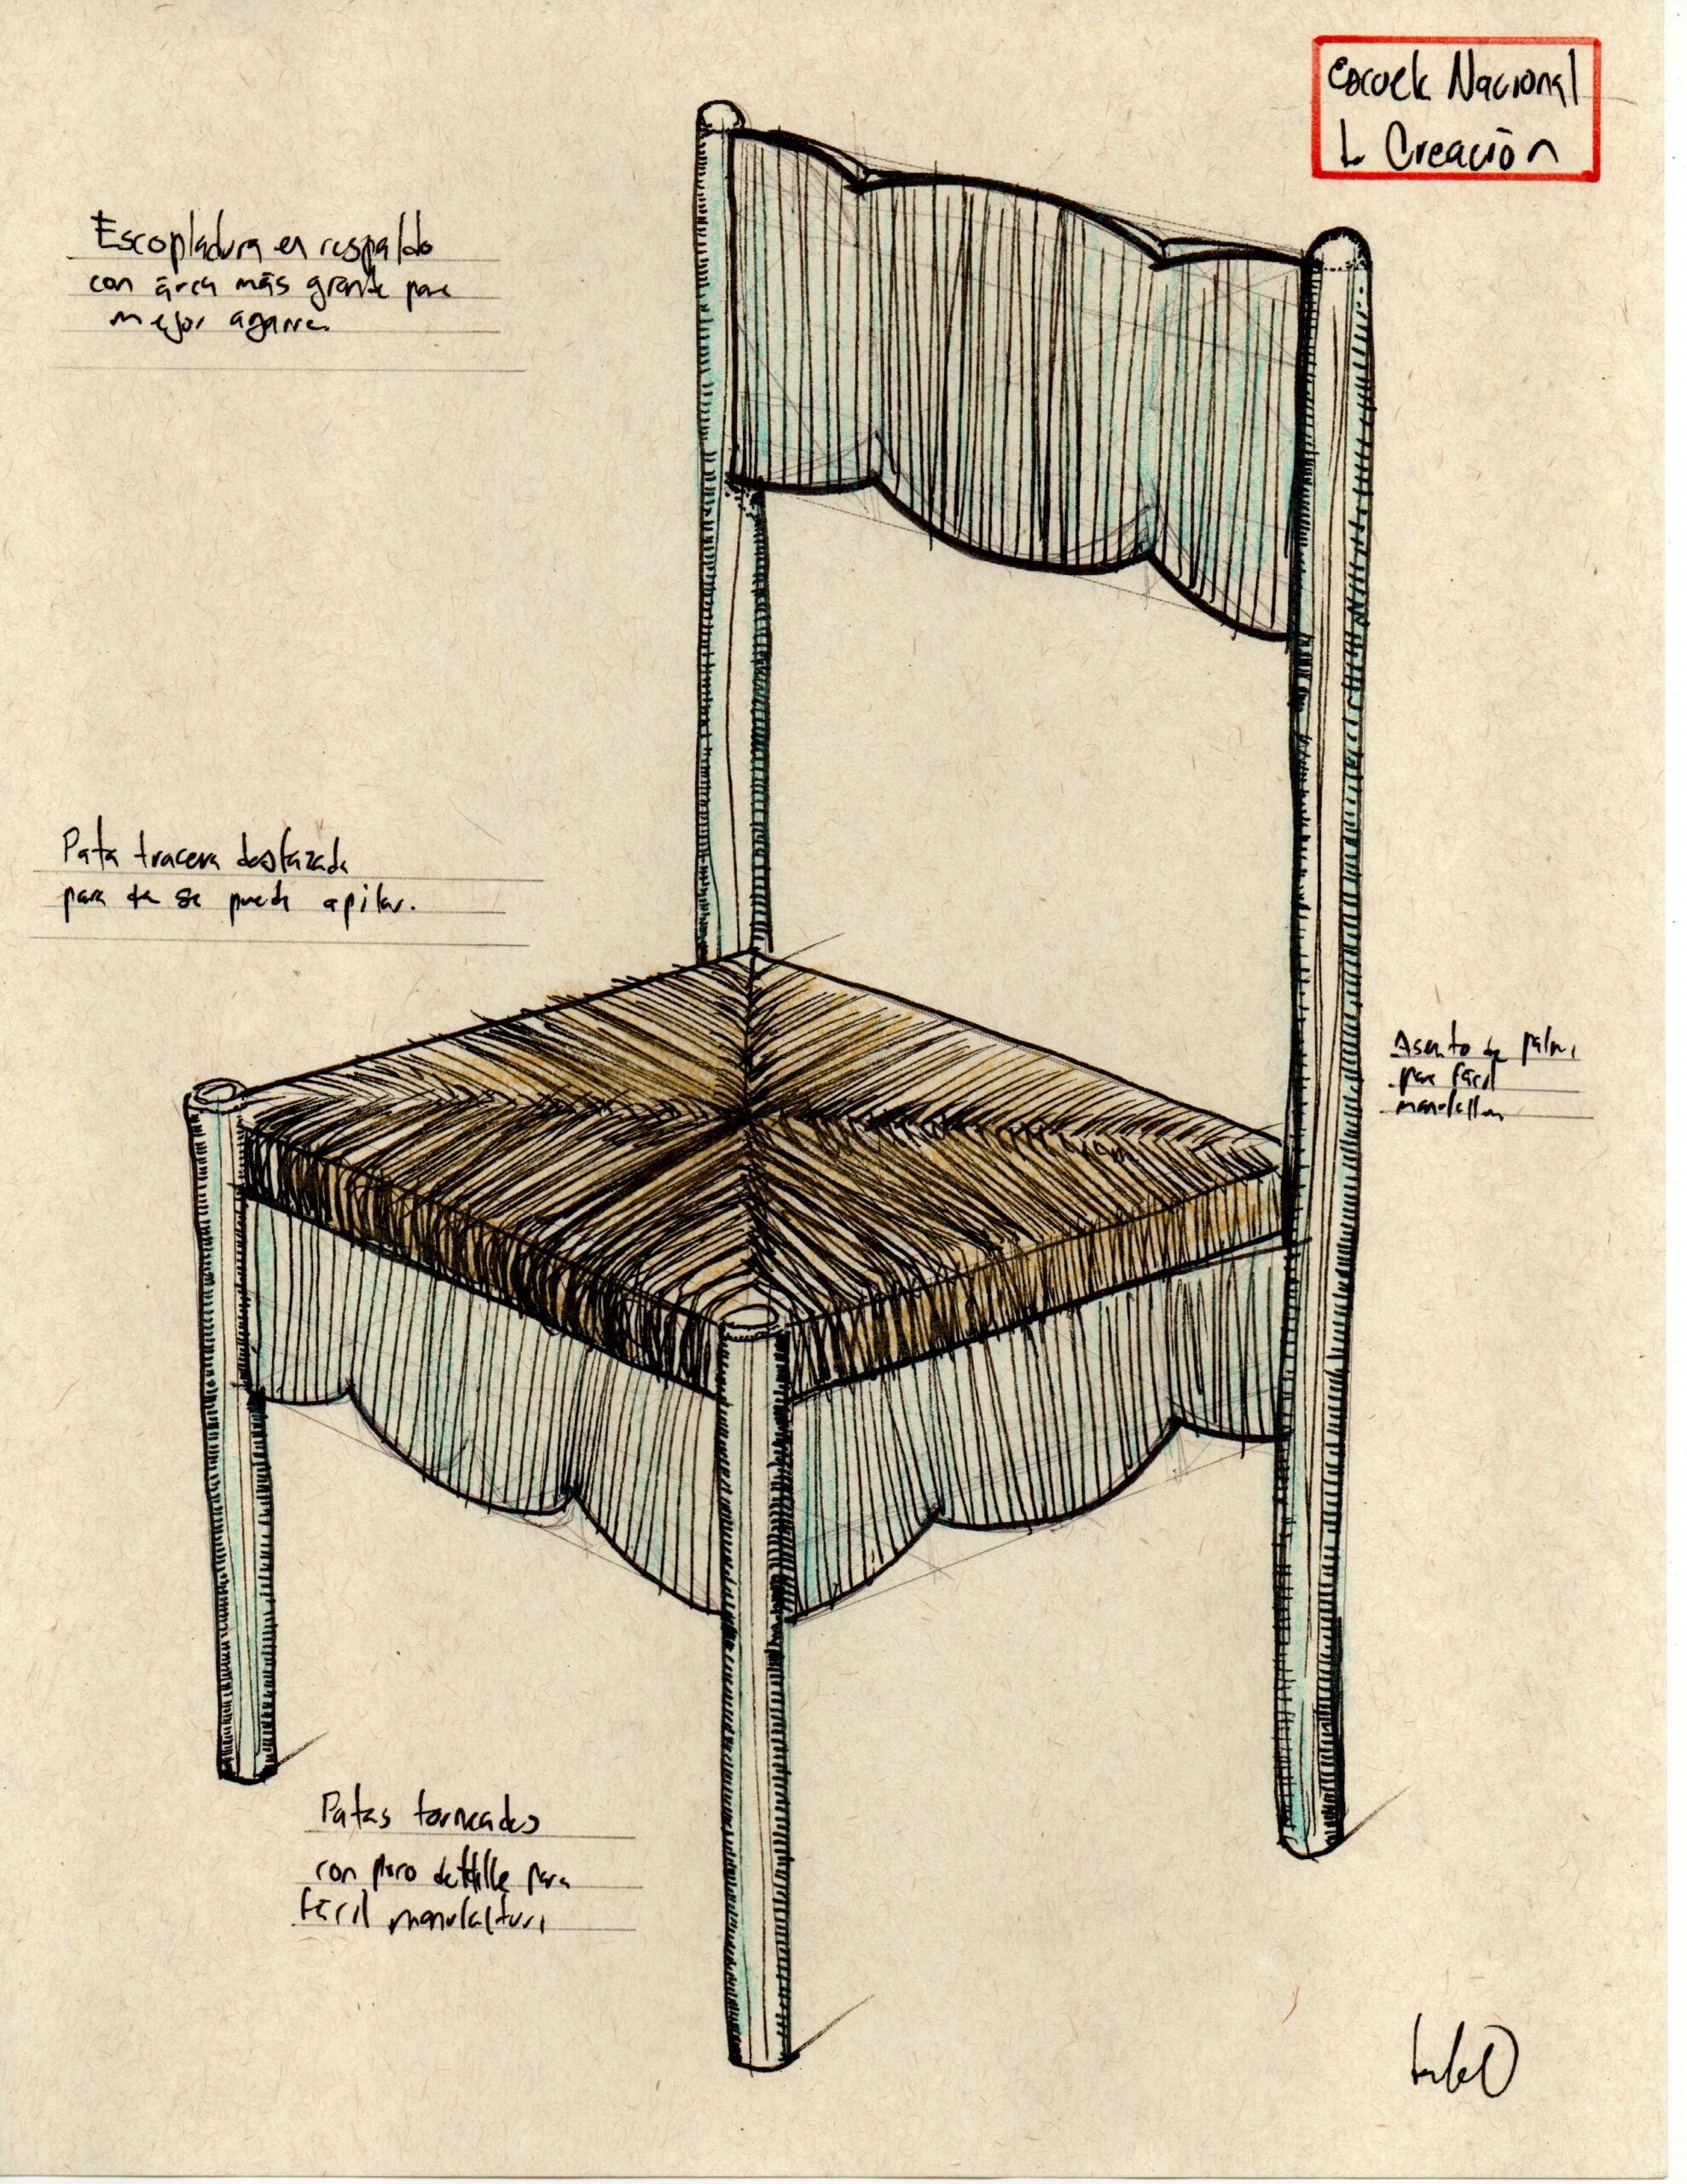 Escuela Nacional
d Creación
Escopladura en respaldo
con área más grande para
mejor agarre.
Pata tracera desfazada
para se puede apilar.
Asiento de palma
para fácil
manufactura
Patas torneadas
con poco detalle para
fácil manufactura